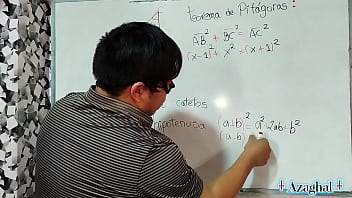 Teorema de Pitágoras:
AB² + BC² = AC²
(x-1)² + x² = (x+1)²
catetos
hipotenusa (a-b)² = a²-2ab+b²
(a-b)
Azaghal